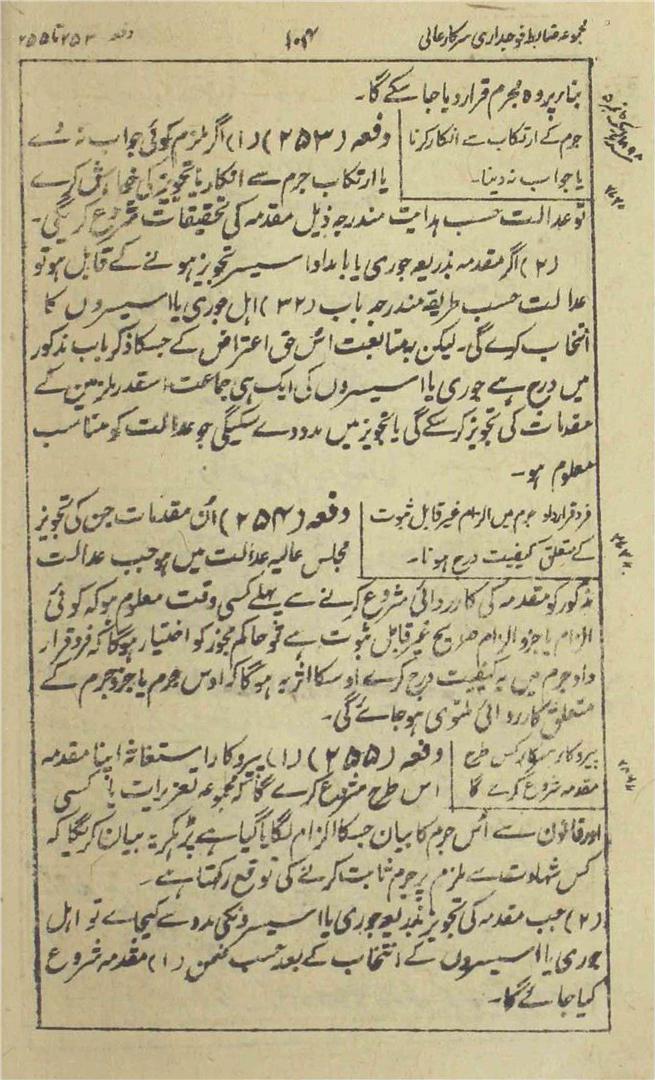 مجموعہ ضابطہ فوجداری سرکار عالی
۱۰۴
دفعہ ۲۵۳ تا ۲۵۵
بنا پر وہ مجرم قرار دیا جا سکے گا۔
جرم کے ارتکاب سے انکار کرنا
یا جواب نہ دینا۔
دفعہ (۲۵۳) (۱) اگر ملزم کوئی جواب نہ دے
یا ارتکاب جرم سے انکار یا تجویز کی خواہش کرے
تو عدالت حسب ہدایت مندرجہ ذیل مقدمہ کی تحقیقات شروع کریگی۔
(۲) اگر مقدمہ بذریعہ جوری یا بامداد اسیسر تجویز ہونے کے قابل ہو تو
عدالت حسب طریقہ مندرجہ باب (۳۲) اہل جوری یا اسیسروں کا
انتخاب کرے گی۔ لیکن بمتابعت اُس حق اعتراض کے جسکا ذکر باب مذکور
میں درج ہے جوری یا اسیسروں کی ایک ہی جماعت اسقدر ملزمین کے
مقدمات کی تجویز کر سکے گی یا تجویز میں مدد دے سکیگی جو عدالت کو مناسب
معلوم ہو۔
فرد قرارداد جرم میں الزام غیر قابل ثبوت
کے متعلق کیفیت درج ہونا۔
دفعہ (۲۵۴) اُن مقدمات جن کی تجویز
مجلس عالیہ عدالت میں ہو جب عدالت
مذکور کو مقدمہ کی کارروائی شروع کرنے سے پہلے کسی وقت معلوم ہو کہ کوئی
الزام یا جزو الزام صریح غیر قابل ثبوت ہے تو حاکم مجوز کو اختیار ہوگا کہ فرد قرار
داد جرم میں یہ کیفیت درج کرے اوسکا اثر یہ ہوگا کہ اوس جرم یا جزو جرم کے
متعلق کارروائی ملتوی ہو جائے گی۔
پیروکار سرکار کس طرح
مقدمہ شروع کرے گا
دفعہ (۲۵۵) (۱) پیروکار استغاثہ اپنا مقدمہ
اس طرح شروع کرے گا کہ مجموعہ تعزیرات یا کسی
اور قانون سے اُس جرم کا بیان جسکا الزام لگایا گیا ہے پڑہکر یہ بیان کریگا کہ
کس شہادت سے ملزم پر جرم ثابت کرنے کی توقع رکھتا ہے۔
(۲) جب مقدمہ کی تجویز بذریعہ جوری یا اسیسرونکی مدد سے کیجاے تو اہل
جوری یا اسیسروں کے انتخاب کے بعد حسب ضمن (۱) مقدمہ شروع
کیا جائے گا۔